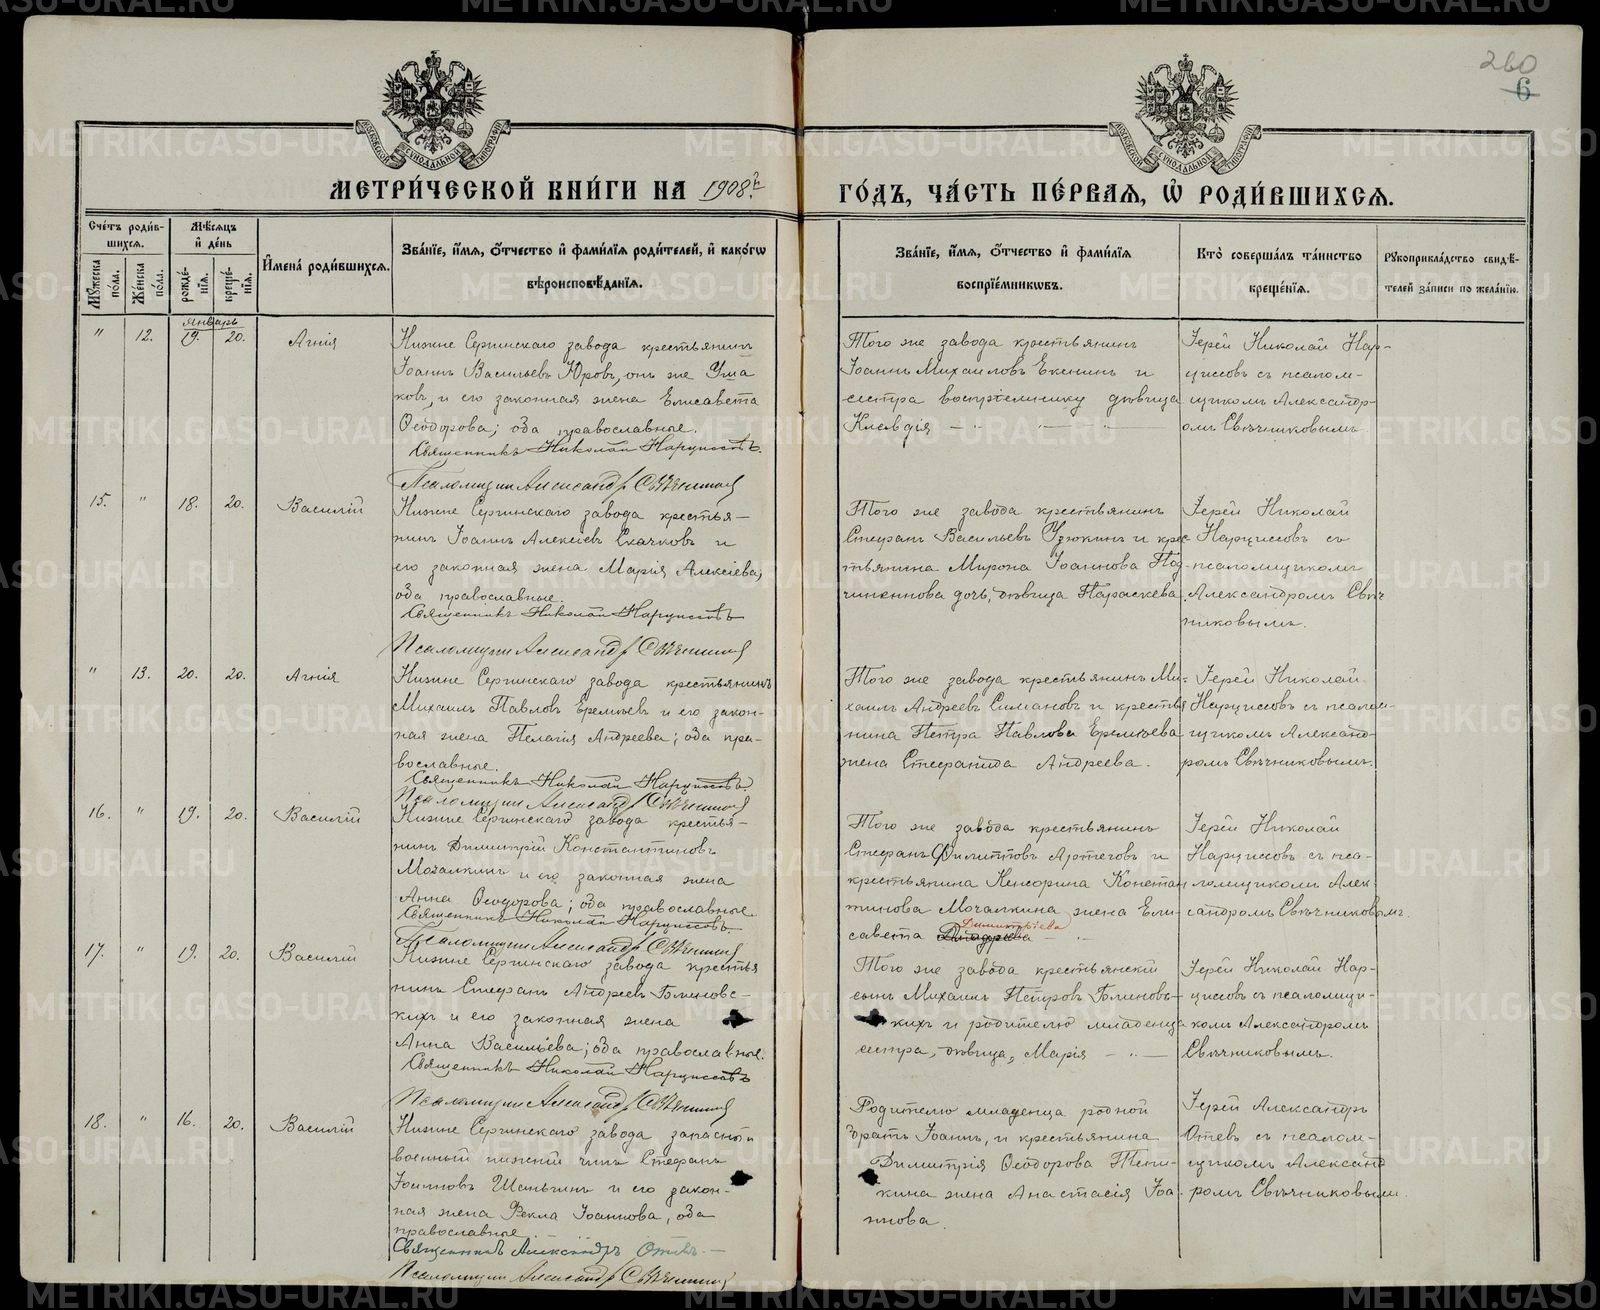 260
6
МОСКОВСКОЙ СѴНОДАЛЬНОЙ ТИПОГРАФІИ
МОСКОВСКОЙ СѴНОДАЛЬНОЙ ТИПОГРАФІИ
МЕТРИ́ЧЕСКОЙ КНИ́ГИ НА 1908й
ГО́ДЪ, ЧА́СТЬ ПЕ́РВАЯ, Ѡ҆ РОДИ́ВШИХСЯ.
Сче́тъ роди́в-
шихся.
Мѣ́сяцъ
и҆ де́нь
Мꙋ́жеска по́ла.
Же́нска по́ла.
рожде́-
нїя.
креще́-
нїя.
И҆мена̀ роди́вшихся.
Зва́нїе, и҆́мя, ѻ҆́тчество и҆ фами́лїя роди́телей, и҆ како́гѡ
вѣроисповѣ́данїя.
Зва́нїе, и҆́мя, ѻ҆́тчество и҆ фами́лїя
воспрїе́мникѡвъ.
Кто̀ соверша́лъ та́инство
креще́нїя.
Рꙋкоприкла́дство свидѣ́-
телей за́писи по жела́нїю.
Январь
" 12. 19. 20. Агнія
Нижне Сергинскаго завода крестьянинъ
Іоаннъ Васильевъ Юровъ, онъ же Уша
ковъ, и его законная жена Елисавета
Ѳеодорова; оба православные.
Священникъ Николай Нарциссовъ.
Псаломщик Александръ Свѣчников
Того же завода крестьянинъ
Іоаннъ Михаиловъ Екенинъ и
сестра воспріемнику дѣвица
Клавдія
Іерей Николай Нар-
циссовъ съ псалом-
щикомъ Александр-
омъ Свѣчниковымъ.
15. " 18. 20. Василій
Нижне Сергинскаго завода крестья-
нинъ Іоаннъ Алексіевъ Скачковъ и
его законная жена Марія Алексіева;
оба православные.
Священникъ Николай Нарциссовъ
Псаломщик Александръ Свѣчников
Того же завода крестьянинъ
Стефанъ Васильевъ Узюкинъ и крес
тьянина Мирона Іоаннова Под-
чиненнова дочь, дѣвица Параскева.
Іерей Николай
Нарциссовъ съ
псаломщикомъ
Александромъ Свѣч
никовымъ.
" 13. 20. 20. Агнія
Нижне Сергинскаго завода крестьянинъ
Михаилъ Павловъ Еремѣевъ и его закон-
ная жена Пелагія Андреева; оба пра-
вославные.
Священникъ Николай Нарциссовъ.
Псаломщик Александръ Свѣчников
Того же завода крестьянинъ Ми-
хаилъ Андреевъ Симановъ и крестья
нина Петра Павлова Еремѣева
жена Стефанида Андреева.
Іерей Николай
Нарциссовъ съ псалом-
щикомъ Александ-
ромъ Свѣчниковымъ.
16. " 19. 20. Василій
Нижне Сергинскаго завода крестья-
нинъ Димитрій Константиновъ
Мочалкинъ и его законная жена
Анна Ѳеодорова; оба православные
Священникъ Николай Нарциссовъ.
Псаломщик Александръ Свѣчников
Того же завода крестьянинъ
Стефанъ Филипповъ Артеговъ и
крестьянина Кенсорина Констан
тинова Мочалкина жена Ели-
савета Димитріева
Іерей Николай
Нарциссовъ съ пса-
ломщикомъ Алек-
сандромъ Свѣчниковымъ.
17. " 19. 20. Василій
Нижне Сергинскаго завода крестья
нинъ Стефанъ Андреевъ Блиновс-
кихъ и его законная жена
Анна Васильева; оба православные.
Священникъ Николай Нарциссовъ
Псаломщик Александръ Свѣчников
Того же завода крестьянскій
сынъ Михаилъ Петровъ Блиновь-
кихъ и родителю младенца
сестра, дѣвица, Марія
Іерей Николай Нар-
циссовъ съ псаломщи-
комъ Александромъ
Свѣчниковымъ.
18. " 16. 20. Василій
Нижне Сергинскаго завода запасный
военный нижній чинъ Стефанъ
Іоанновъ Шаньгинъ и его закон-
ная жена Ѳекла Іоаннова, оба
православные.
Священникъ Александръ Отевъ.
Псаломщик Александръ Свѣчников
Родителю младенца родной
братъ Іоаннъ, и крестьянина
Димитрія Ѳеодорова Тени-
кина жена Анастасія Іоа
ннова.
Іерей Александръ
Отевъ съ псалом-
щикомъ Александ
ромъ Свѣчниковымъ.
METRIKI.GASO-URAL.RU